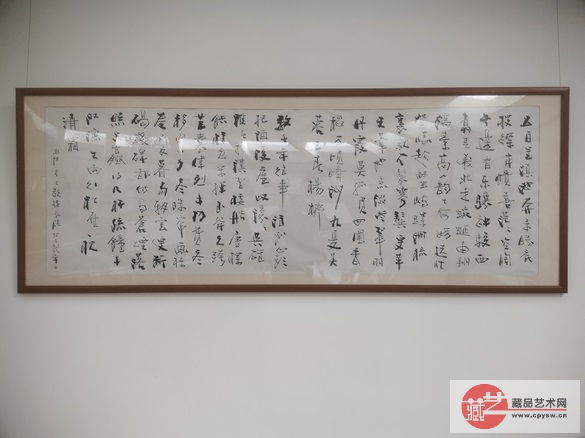 五百里滇池奔来眼底
披襟岸帻喜茫茫空阔
无边看东骧神骏西
翥灵仪北走蜿蜒南翔
缟素高人韵士何妨选胜
登临趁蟹屿螺洲梳
裹就风鬟雾鬓更苹
天苇地点缀些翠羽
丹霞莫孤负四围香
稻万顷晴沙九夏芙
蓉三春杨柳
数千年往事注到心头
把酒凌虚叹滚滚英雄
谁在想汉习楼船唐標
铁柱宋挥玉斧元跨
革囊伟烈丰功费尽
移山心力尽珠帘画栋
卷不及暮雨朝云便断
碣残碑都付与苍烟落
照只赢得几杵疏鐘半
江渔火两行秋雁一枕
清霜
藏艺
藏品艺术网
www.cpysw.cn